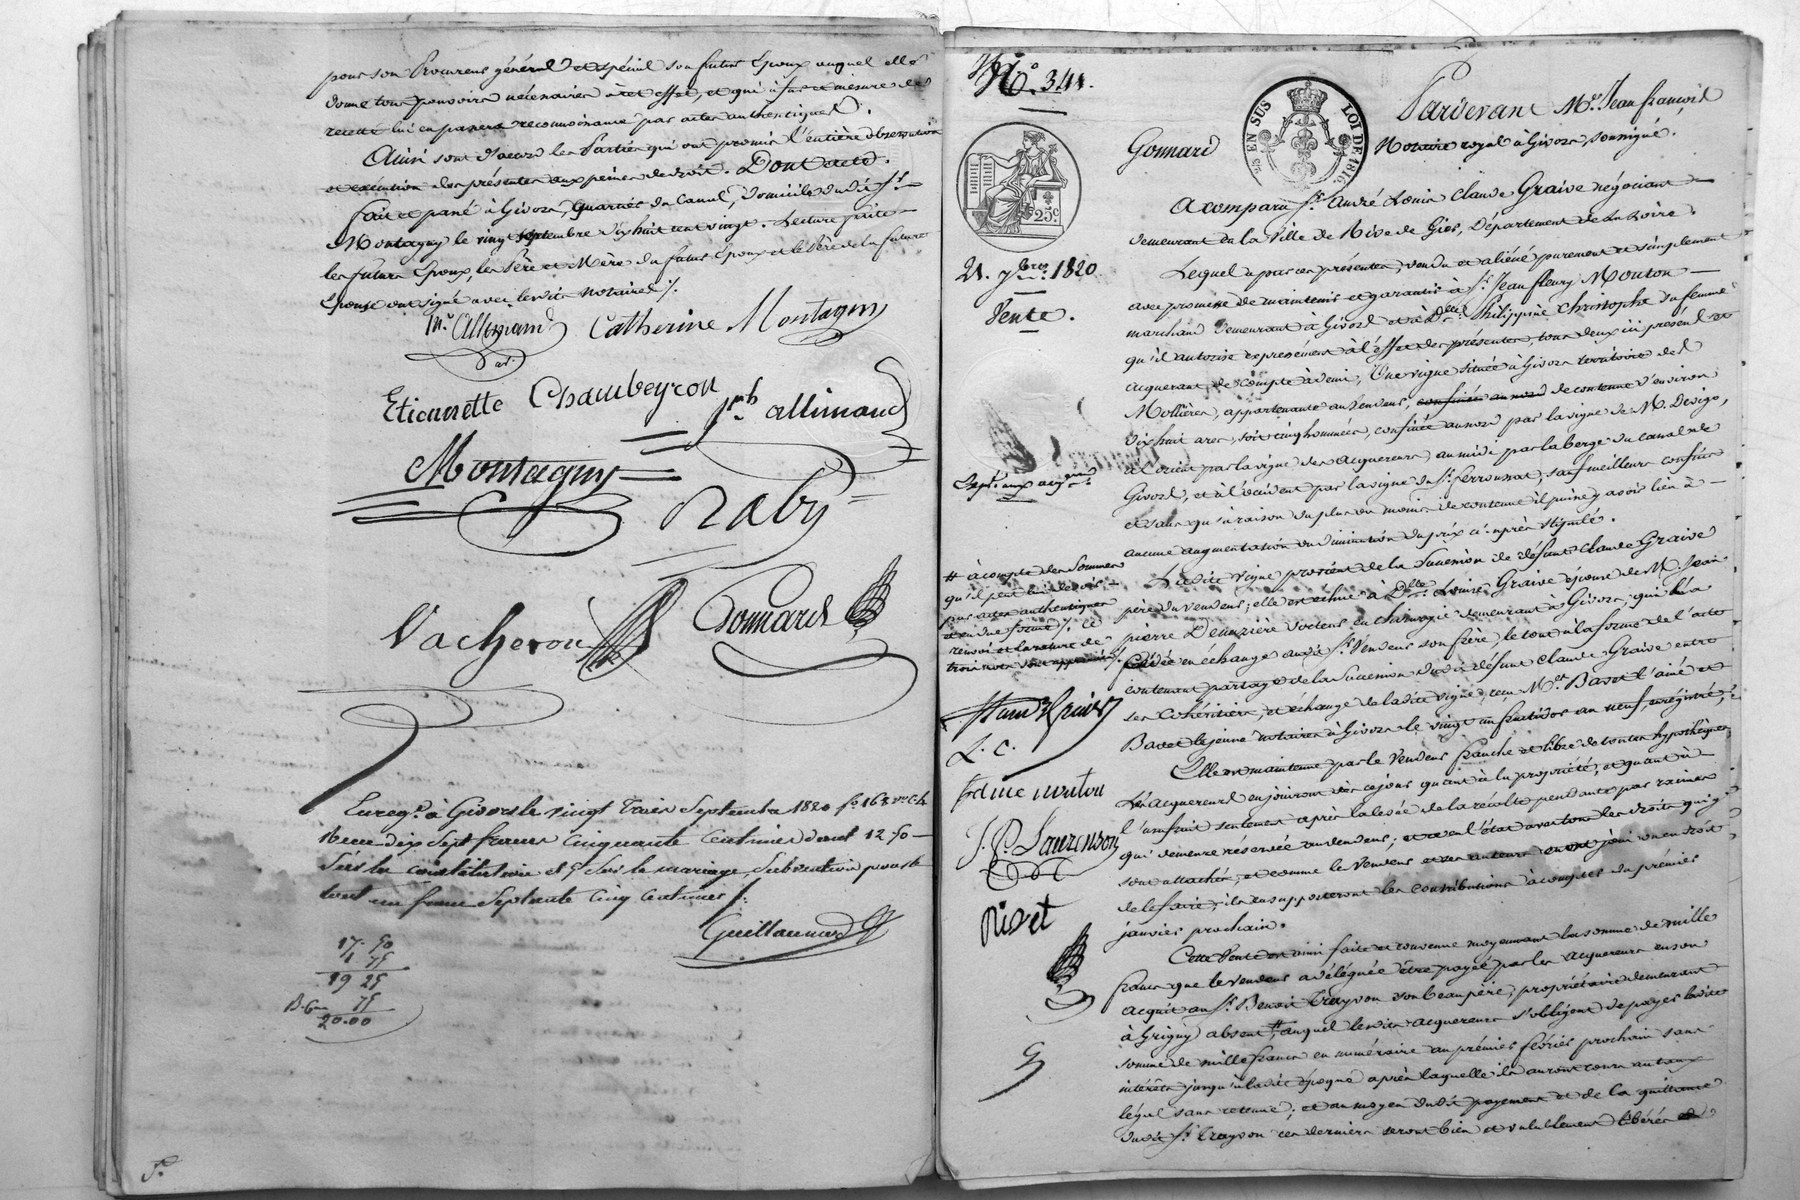 pour son Procureur général et spécial son futur Epoux auquel elle
donne tous pouvoirs nécessaires à cet effet, et qui à fur et mesure de
recette lui en passera reconnoissance par actes authentiques.
Ainsi sont d'accord les Parties qui ont promis l'entière observation
et exécution des présentes aux peines de droit. Dont acte.
fait et passé à Givors, quartier du Canal, domicile dudit Sr.
Montagny le vingt septembre dix huit cent vingt. Lecture faite
les futurs Epoux, les Père et Mère du futur Epoux et le Père de la future
Epouse ont signé avec lesdits notaires ./.
Allimand Catherine Montagny
Etiennette Chambeyron
jph allimand
Montagny
Raby
Vacheron
Gonnard
Enreg.é à Givors le vingt trois Septembre 1820 fo 168 vo c 4
Reçu dix sept francs Cinquante Centimes dont 12.50
Sur la constitution et 5 sur le mariage, Subvention
tout un franc Septante Cinq Centimes ./.
Guillaumard
17. 50
1 75
19 25
75
20.00
No. 341.
EN SUS
LOI DE 1816.
25c
21. 7bre 1820
Vente.
Pardevant Me. Jean françois
Gonnard Notaire royal à Givors, soussigné.
A comparu Sr. André Louis Claude Graive négociant
demeurant en la Ville de Rive de Gier, Département de la Loire.
Lequel a par ces présentes, vendu et aliéné purement et simplement
avec promesse de maintenir et garantir à Sr. Jean fleury Mouton
marchand demeurant à Givors et à Dme. Philippine Christophe sa femme
qu'il autorise expressément à l'effet des présentes, tous deux ici présens et
acquerant, de compte à demi, Une vigne située à Givors territoire de
Mollières, appartenante au Vendeur, de contenue d'environ
dix huit ares, soit cinq hommées, confinée au nord par la vigne de M. Devigo,
à l'orient par la vigne des acquereurs, au midi par la berge du canal de
Givors, et à l'occident par la vigne du Sr. ferroussat, sauf meilleurs confins
et sans qu'à raison du plus ou moins de contenue il puisse y avoir lieu à
aucune augmentation ou diminution du prix ci-après stipulé.
Ladite vigne provient de la Succession de défunt Claude Graive
père du vendeur; elle est échue à Dme. Louise Graive épouse de M. Jean
pierre Deuzière docteur en chirurgie demeurant à Givors, qui l'a
cédée en échange audit Sr. Vendeur son frère, le tout à la forme de l'acte
contenant partage de la Succession dudit défunt Claude Graive entre
ses cohéritiers, et échange de ladite vigne, reçu Mes. Badet l'ainé et
Badet le jeune notaires à Givors le vingt un fructidor an neuf, enregistré.
Elle est maintenue par le Vendeur franche et libre de toutes hypothèques
Les Acquereurs en jouiront dès ce jour quant à la propriété, et quant à
l'usufruit seulement après la levée de la récolte pendante par racines
qui demeure reservée au vendeur; et avec tous les droits qui y
sont attachés, et comme le Vendeur et ses auteurs en ont joui ou eu droit
de le faire; ils en supporteront les contributions à compter du premier
janvier prochain.
Cette Vente est ainsi faite et convenue moyennant la somme de mille
francs que le Vendeur a déléguée être payée par les acquereurs en son
acquit au Sr. Benoit Trayvon son beaupère, propriétaire demeurant
à Grigny absent # auquel lesdits acquereurs s'obligent de payer ladite
somme de mille francs en numéraire au premier février prochain sans
intérêts jusqu'à ladite époque après laquelle ils auront cours au taux
légal sans retenue; et au moyen dudit payement et de la quittance
dudit Sr. Trayvon ces derniers seront bien et valablement libérés
# à compte des Sommes
qu'il peut lui devoir
par actes authentiques
et en due forme ./. Le
renvoi et la rature de
trois mots sont approuvés ./.
L. C.
fme mouton
Rivet
G